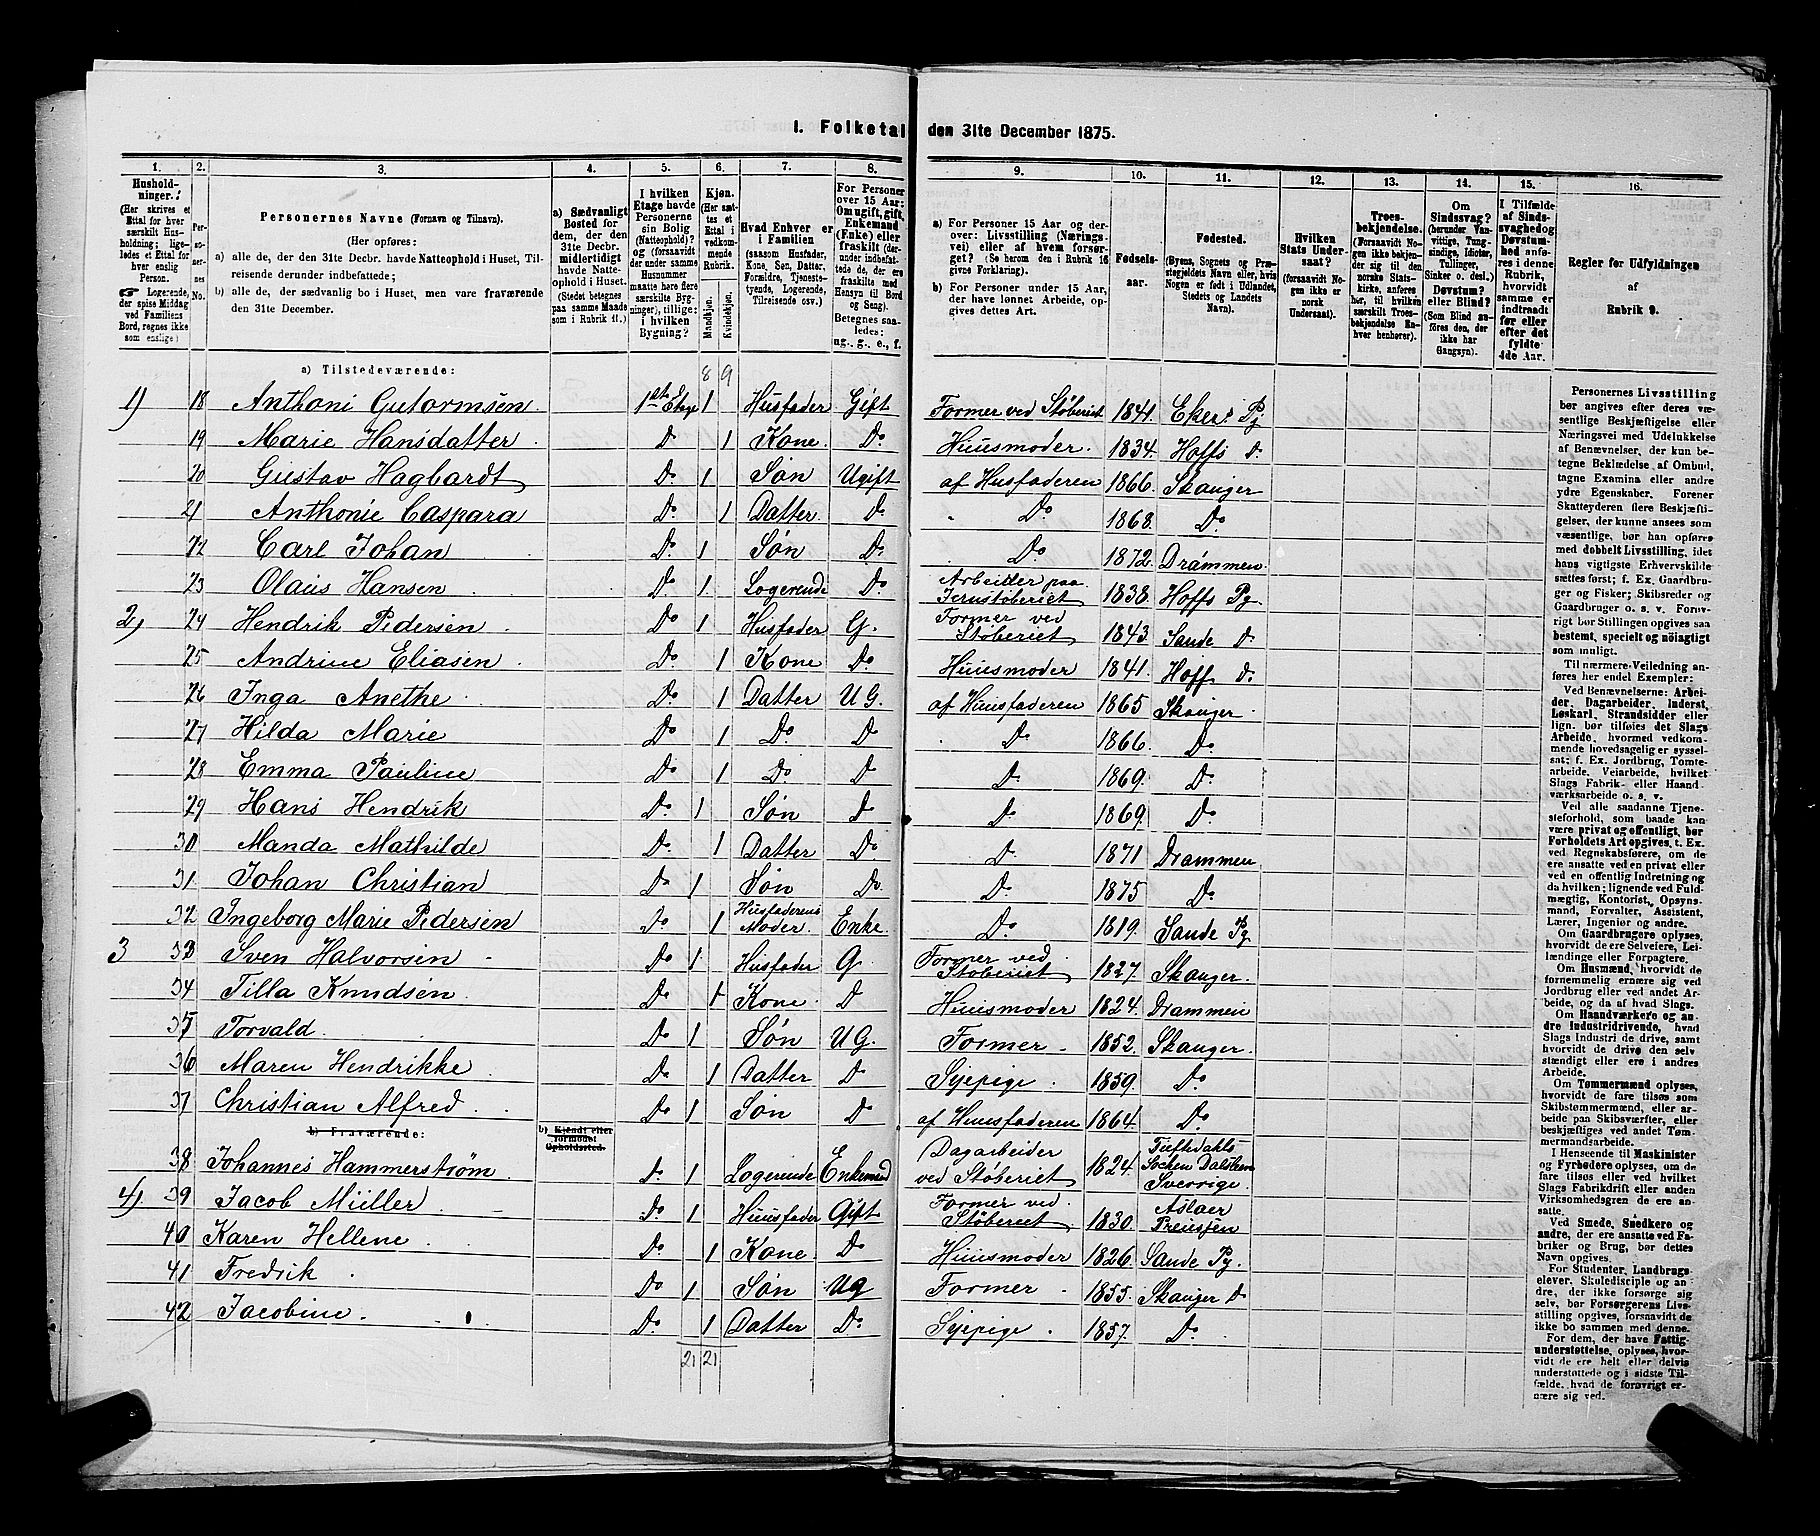 I. Folketal den 31te December 1875.
1. 2. 3. 4. 5. 6. 7. 8. 9. 10. 11. 12. 13. 14. 15. 16.
Hushold-
ninger.
(Her skrives et
Ettal for hver
særskilt Hus-
holdning; lige-
ledes et Ettal for
hver enslig
Person.
Logerende,
der spise Middag
ved Familiens
Bord, regnes ikke
som enslige)
Per-
so-
ner-
nes
No.
Personernes Navne (Fornavn og Tilnavn).
(Her opføres:
a) alle de, der den 31te Decbr. havde Natteophold i Huset, Til-
reisende derunder indbefattede;
b) alle de, der sædvanlig bo i Huset, men vare fraværende
den 31te December.
a) Sædvanligt
Bosted for
dem, der den
31te Decbr.
midlertidigt
havde Natte-
ophold i Huset.
(Stedet betegnes
paa samme Maade
som i Rubrik 11.)
I hvilken
Etage havde
Personerne
sin Bolig
(Natteophold)?
(og forsaavidt
der under samme
Husnummer
maatte høre flere
særskilte Byg-
ninger), tillige:
i hvilken
Bygning?
Kjøn.
(Her sæt-
tes et
Ettal i
vedkom-
mende
Rubrik.
Mandkjøn.
Kvindekjøn.
Hvad Enhver er
i Familien
(saasom Husfader,
Kone, Søn, Datter,
Forældre, Tjeneste-
tyende, Logerende,
Tilreisende osv.)
For Personer
over 15 Aar:
Om ugift, gift,
Enkemand
(Enke) eller
fraskilt (der-
under indbefat-
tede de, der ere
fraskilte med
Hensyn til Bord
og Seng).
Betegnes saa-
ledes:
ug., g., e., f.
a) For Personer 15 Aar og der-
over: Livsstilling (Nærings-
vei) eller af hvem forsør-
get? (Se herom den i Rubrik 16
givne Forklaring).
b) For Personer under 15 Aar,
der have lønnet Arbeide, op-
gives dettes Art.
Fødsels-
aar.
Fødested.
(Byens, Sognets og Præ-
stegjeldets Navn eller, hvis
Nogen er født i Udlandet,
Stedets og Landets
Navn).
Hvilken
Stats Under-
saat?
(forsaavidt No-
gen ikke er
norsk
Undersaat).
Troes-
bekjendelse.
(Forsaavidt No-
gen ikke bekjen-
der sig til den
norske Stats-
kirke, anføres
her, til hvilken
særskilt Troes-
bekjendelse En-
hver henhører).
Om
Sindssvag?
(herunder Van-
vittige, Tung-
sindige, Idioter,
Tullinger,
Sinker o. desl.)
Døvstum?
eller Blind?
(Som Blind an-
føres den, der
ikke har
Gangsyn).
I Tilfælde
af Sinds-
svaghed og
Døvstum-
hed anfø-
res i denne
Rubrik,
hvorvidt
samme er
indtraadt
før eller
efter det
fyldte
4de Aar.
Regler for Udfyldningen
af
Rubrik 9.
a) Tilstedeværende: 8 9
1) 18 Anthoni Gutormsen. 1ste Etage 1 Husfader Gift Former ved Støberiet 1841. Ekers Pg
19 Marie Hansdatter. Do 1 Kone. Do Huusmoder. 1834. Hoffs Do
20 Gustav Hagbardt Do 1 Søn Ugift af Husfaderen 1866. Skanger
21 Anthonie Caspara Do. 1 Datter. Do Do. 1868. Do.
22 Carl Johan Do. 1 Søn Do. Do. 1872. Drammen.
23 Olaus Hansen Do 1. Logerende Do. Arbeider paa Jernstøberiet 1838. Hoffs Pg.
2) 24 Hendrik Pedersen. Do 1 Husfader G. Former ved Støberiet 1843. Sande Do
25 Andrine Eliasen. Do. 1 Kone Do. Huusmoder 1841. Hoff Do
26 Inga Anethe. Do. 1 Datter U G. af Huusfaderen 1865 Skanger.
27 Hilda Marie Do 1 Do. Do Do 1866. Do
28 Emma Pauline Do 1 Do Do Do 1869. Do.
29 Hans Hendrik Do 1 Søn Do Do 1869. Do.
30 Manda Mathilde Do. 1 Datter Do. Do 1871 Drammen
31 Johan Christian Do 1 Søn Do. Do. 1875 Do.
32 Ingeborg Marie Pedersen Do 1 Husfaderens Moder. Enke Do. 1819. Sande Pg
3 33 Sven Halvorsen Do 1 Husfader G. Former ved Støberiet 1827. Skanger.
34 Tilla Knudsen. Do 1 Kone. Do Huusmoder 1824. Drammen
35 Torvald. Do 1 Søn U G. Former 1852. Skanger.
36 Maren Hendrikke Do 1 Datter Do Syepige. 1859. Do
37 Christian Alfred. Do 1 Søn Do af Huusfaderen 1864. Do.
b) Fraværende: b) Kjendt eller formodet Opholdssted.
38 Johannes Hammerstrøm Do. 1 Logerende Enkemand Dagarbeider ved Støberiet 1824. Socken Sverrige.
4) 39 Jacob Müller. Do 1 Huusfader Gift Former ved Støberiet 1830. Preussen
40 Karen Hellene. Do 1 Kone. Do Huusmoder 1826. Sande Pg.
41 Fredrik. Do 1 Søn Ug Former 1855. Skanger Do
42 Jacobine. Do. 1 Datter Do. Syepige. 1857. Do.
21 21
Personernes Livsstilling
bør angives efter deres væ-
sentlige Beskjæftigelse eller
Næringsvei med Udelukkelse
af Benævnelser, der kun be-
tegne Beklædelse af Ombud,
tagne Examina eller andre
ydre Egenskaber. Forener
Skatteyderen flere Beskjæfti-
gelser, der kunne ansees som
væsentlige, bør han opføres
med dobbelt Livsstilling, idet
hans vigtigste Erhvervskilde
sættes først; f. Ex. Gaardbru-
ger og Fisker; Skibsreder og
Gaardbruger o. s. v. Forøv-
rigt bør Stillingen opgives saa
bestemt, specielt og nöiagtigt
som muligt.
Til nærmere Veiledning an-
føres her endel Exempler:
Ved Benævnelserne: Arbei-
der, Dagarbeider, Inderst,
Løskarl, Strandsidder eller
lign. bør tilføies det Slags
Arbeide, hvormed vedkom-
mende hovedsagelig er syssel-
sat; f. Ex. Jordbrug, Tomte-
arbeide, Veiarbeide, hvilket
Slags Fabrik- eller Haand-
værksarbeide o. s. v.
Ved alle saadanne Tjene-
steforhold, som baade kan
være privat og offentligt, bør
Forholdets Art opgives, t. Ex.
ved Regnskabsførere, om de
ere ansatte ved en privat eller
ved en offentlig Indretning og
da hvilken; lignende ved Fuld-
mægtig, Kontorist, Opsyns-
mand, Forvalter, Assistent,
Lærer, Ingeniør og andre.
Om Gaardbrugere oplyses,
hvorvidt de ere Selveiere, Lei-
lændinge eller Forpagtere.
Om Husmænd, hvorvidt de
fornemmelig ernære sig ved
Jordbrug eller ved andet Ar-
beide, og da af hvad Slags.
Om Haandværkere og an-
dre Industridrivende, hvad
Slags Industri de drive, samt
hvorvidt de drive den selv-
stændigt eller ere i andres
Arbeide.
Om Tømmermænd oplyses,
hvorvidt de fare tilsøs som
Skibstømmermænd, eller ar-
beide paa Skibsværfter, eller
beskjæftiges ved andet Tøm-
mermandsarbeide.
I Henseende til Maskinister
og Fyrbødere oplyses, om de
fare tilsøs eller ved hvilket
Slags Fabrikdrift eller anden
Virksomhedsgren de ere an-
satte.
Ved Smede, Snedkere og
andre, der ere ansatte ved Fa-
briker og Brug, bør dettes
Navn opgives.
For Studenter, Landbrugs-
elever, Skoledisciple og an-
dre, der ikke forsørge sig
selv, bør Forsørgerens Livs-
stilling opgives, forsaavidt de
ikke bo sammen med denne.
For dem, der have Fattig-
understøttelse, oplyses, hvor-
vidt de ere helt eller delvis
understøttede og i sidste Til-
fælde, hvad de forøvrigt er-
nære sig ved.